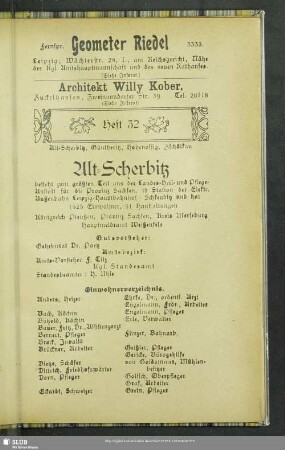 Fernspr. Geometer Riedel 3333.
Leipzig, Wächterstr. 28, I., am Reichsgericht, Nähe
der Kgl. Amtshauptmannschaft und des neuen Rathauses.
(Siehe Inserat)
Architekt Willy Kober,
Zuckelhausen, Zweinaundorfer Str. 39. Tel. 20718
(Siehe Inserat)
Heft 32
Alt-Scherbitz,
Alt-Scherbitz
besteht zum größten Teil aus der Landes-Heil- und Pflege-
Anstalt für die Provinz Sachsen, ist Station der Elektr.
Außenbahn Leipzig-Hauptbahnhof–Schkeuditz und hat
Einwohner, Haushaltungen
Königreich Preußen, Provinz Sachsen, Kreis Merseburg
Hauptmeldeamt Weißenfels
Gutsvorsteher:
Geheimrat Dr. Paetz
Amtsbezirk:
Amts-Vorsteher F. Titz
Kgl. Standesamt
Standesbeamter:
Einwohnerverzeichnis.
Anders, Heizer
Bach, Köchin
Bauer, Fritz, Dr.,
Bernert, Pfleger
Brack, Invalid
Brückner, Arbeiter
Dietze, Schäfer
Dittrich, Friedhofswärter
Dorn, Pfleger
Eckardt, Schweizer
Ehrke, Dr., ordentl. Arzt
Engelmann, Frdr., Arbeiter
Engelmann, Pfleger
Erle, Verwalter
Geißler, Pfleger
Gericke, Bürogehilfe
Golisch, Oberpfleger
Graf, Arbeiter
Grein, Pfleger